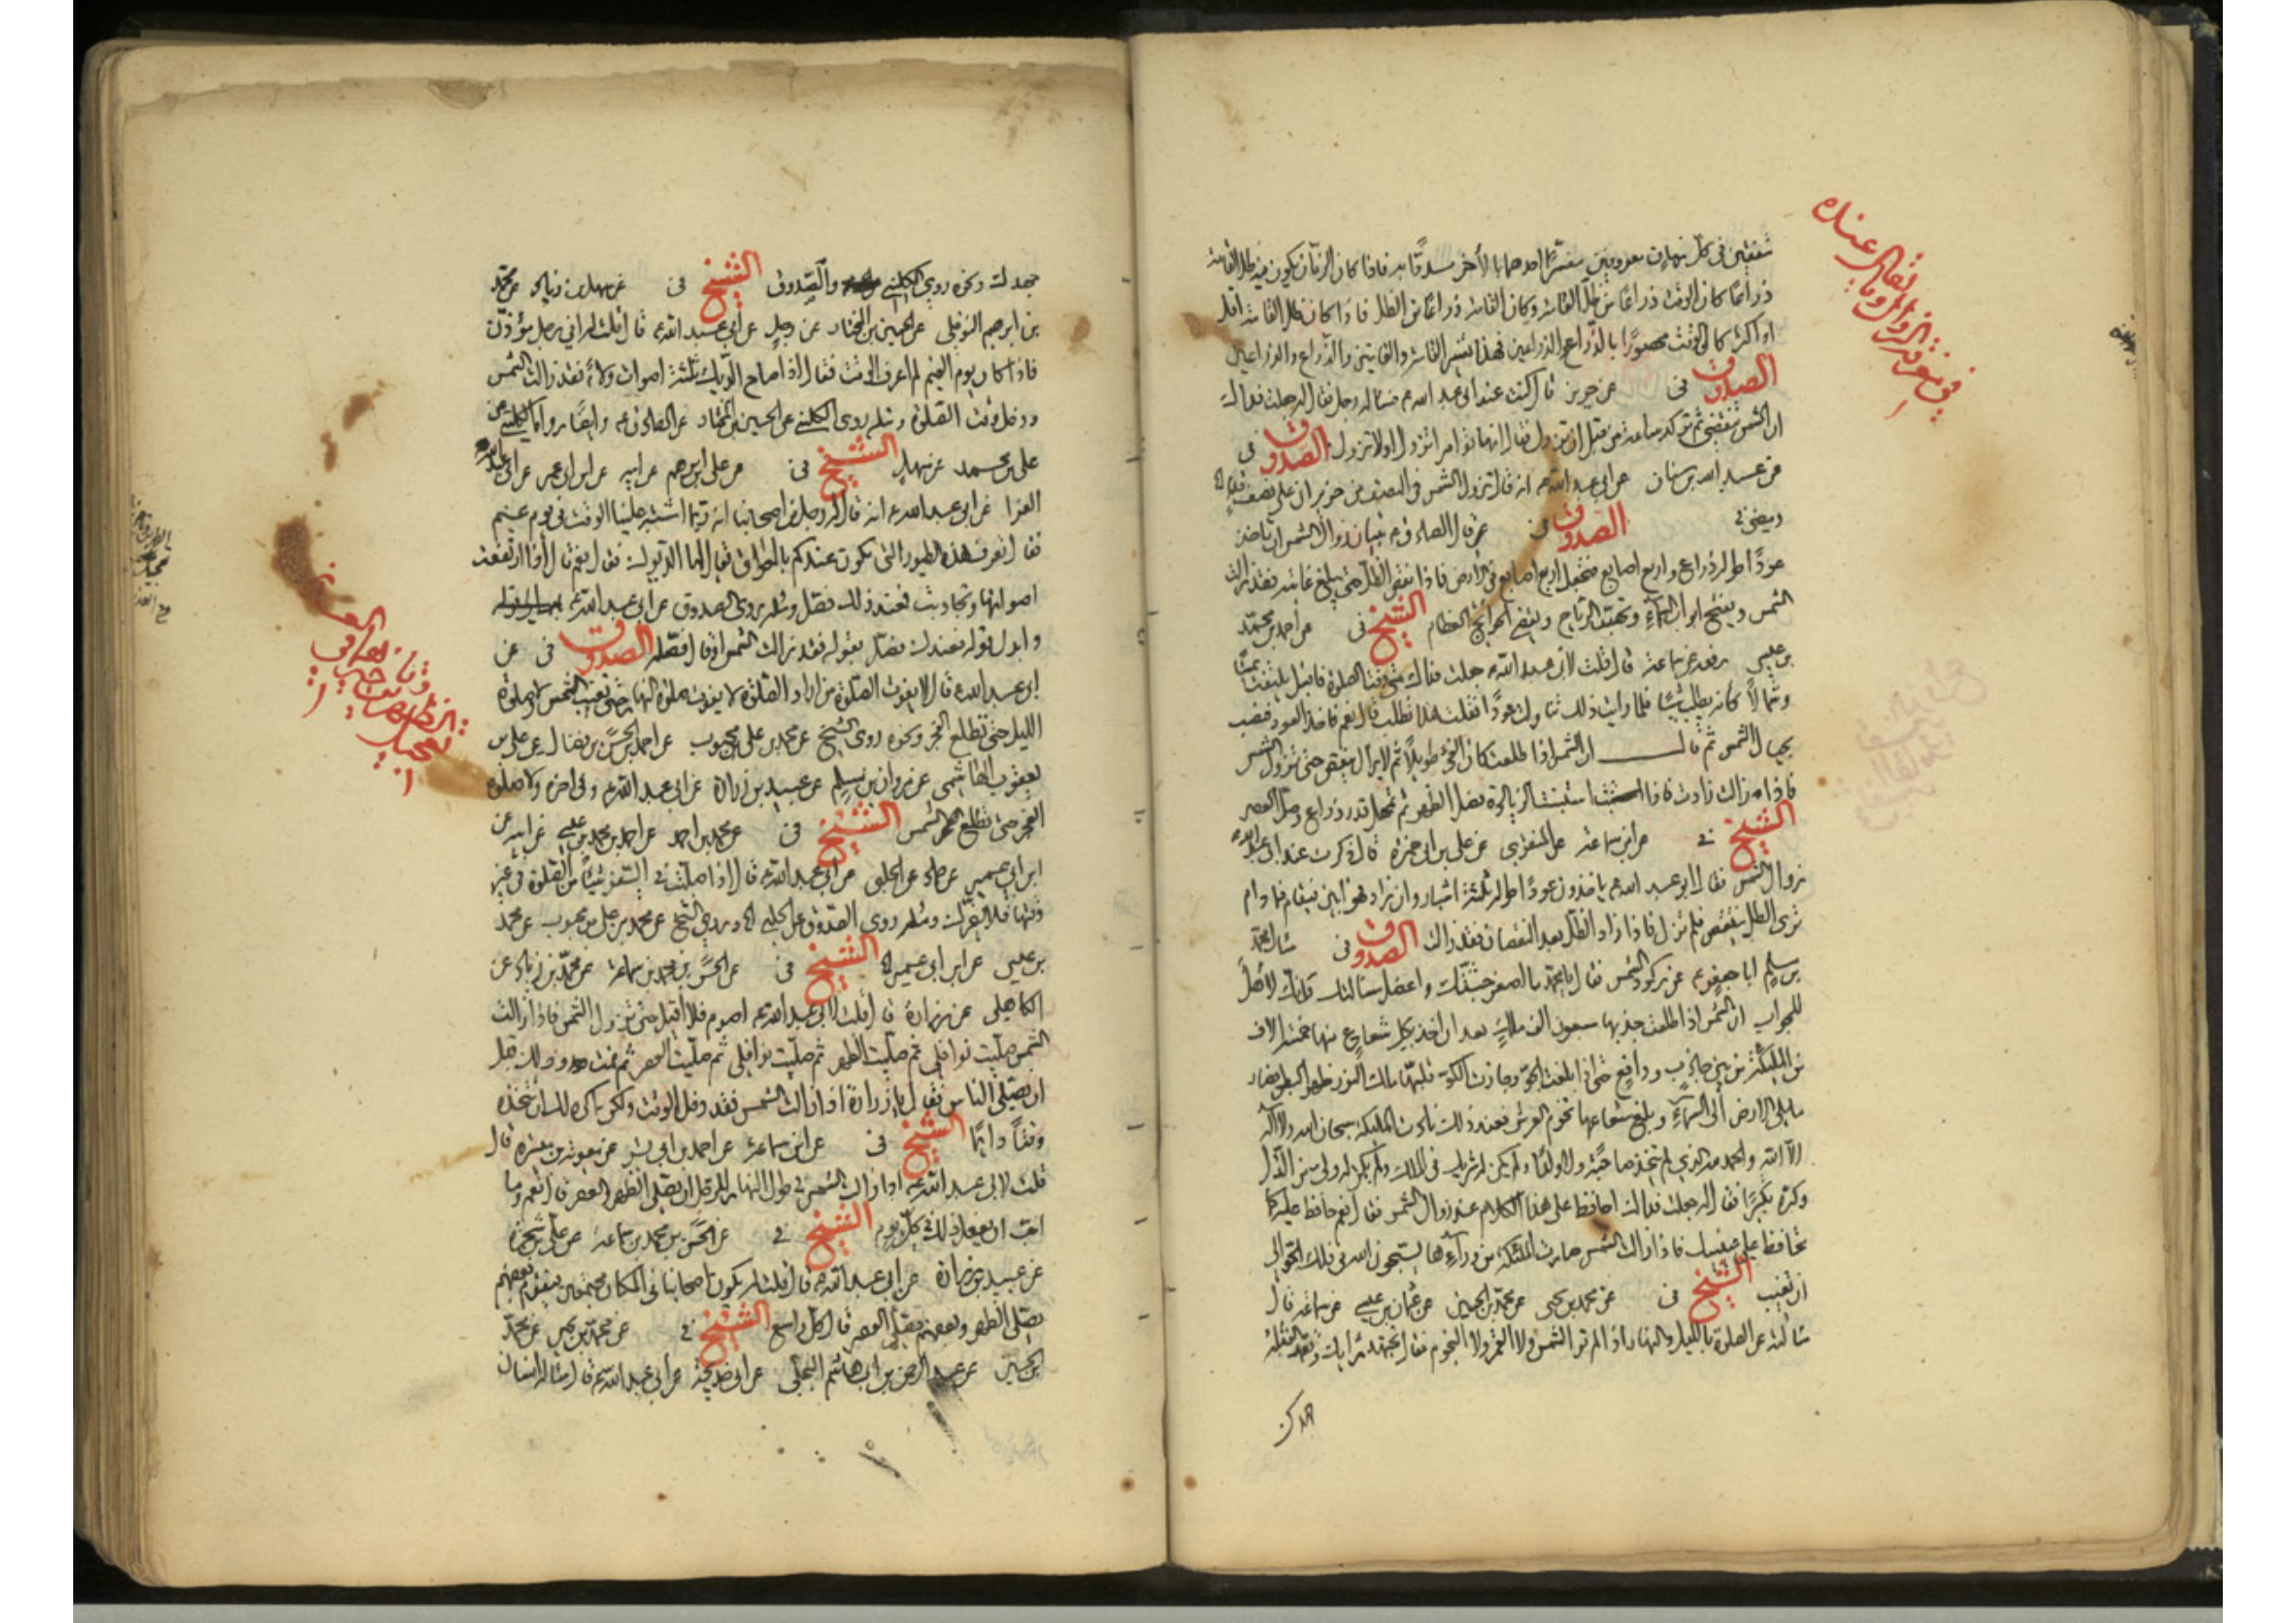 متفقين في كل زمان معروفين مفسرا احدهما بالاخر مسددا به فاذا كان الزمان يكون فيه ظل القامة
ذراعا كان الوقت ذراعا من ظل القامة وكان القامة ذراعا من الظل فاذا كان ظل القامة اقل
او اكثر كان الوقت محصورا بالذراع والذراعين فهذا تفسير القامة والقامتين والذراع والذراعين
الصدوق في عن حريز قال كنت عند ابي عبد الله ع فساله رجل فقال له جعلت فداك
ان الشمس تنقضي ثم تركد ساعة من قبل ان تزول فقال انها تؤامر اتزول او لا تزول الصدوق في
عن عبد الله بن سنان عن ابي عبد الله ع انه قال تزول الشمس في النصف من حزيران على نصف قدم
الصدوق في عن قال الصادق ع تبيان زوال الشمس ان تاخذ
عودا طوله ذراع واربع اصابع فتجعل اربع اصابع في الارض فاذا نقص الظل حتى يبلغ غايته فقد زالت
الشمس ويفتح ابواب السماء وتهب الرياح وتقضى الحوائج العظام الشيخ في عن احمد بن محمد
بن عيسى رفعه عن سماعة قال قلت لابي عبد الله ع جعلت فداك متى وقت الصلوة فاقبل يلتفت يمينا
وشمالا كانه يطلب شيئا فلما رايت ذلك تناولت عودا فقلت هذا تطلب قال نعم فاخذ العود فنصب
بحيال الشمس ثم قال ان الشمس اذا طلعت كان الفيء طويلا ثم لا يزال ينقص حتى تزول الشمس
فاذا زالت زادت فاذا استبنت الزيادة فصل الظهر ثم تمهل قدر ذراع وصل العصر
الشيخ في عن ابن سماعة عن المنقري عن علي بن ابي حمزة قال ذكرت عند ابي عبد الله ع
زوال الشمس فقال ابو عبد الله ع ياخذون عودا طوله ثلثة اشبار وان زاد فهو ابين فيقام فما دام
ترى الظل ينقص فلم تزل فاذا زاد الظل بعد النقصان فقد زالت الصدوق في سال محمد
بن مسلم ابا جعفر ع عن ركود الشمس فقال يا محمد ما اصغر جثتك واعضل مسالتك وانك لاهل
للجواب ان الشمس اذا طلعت جذبها سبعون الف ملك بعد ان اخذ بكل شعاع منها خمسة الاف
من الملئكة من بين جاذب ودافع حتى اذا بلغت الجو وحاذت الكوة قلبها ملك النور ظهرا لبطن فصار
ما يلي الارض الى السماء وبلغ شعاعها تخوم العرش فعند ذلك نادت الملئكة سبحان الله ولا اله
الا الله والحمد لله الذي لم يتخذ صاحبة ولا ولدا ولم يكن له شريك في الملك ولم يكن له ولي من الذل
وكبره تكبيرا فقال له جعلت فداك احافظ على هذا الكلام عند زوال الشمس فقال نعم حافظ عليه كما
تحافظ على عينيك فاذا زالت الشمس صارت الملئكة من ورائها يسبحون الله في فلك الجو الى
ان تغيب الشيخ في عن محمد بن يحيى عن محمد بن الحسين عن عثمان بن عيسى عن سماعة قال
سالته عن الصلوة بالليل والنهار اذا لم تر الشمس ولا القمر ولا النجوم فقال تجتهد رايك وتعمد القبلة
جهدك ونحوه روى الكليني والصدوق الشيخ في عن سهل بن زياد عن محمد
بن ابرهيم النوفلي عن الحسين بن المختار عن رجل عن ابي عبد الله ع قال قلت له اني رجل مؤذن
فاذا كان يوم الغيم لم اعرف الوقت فقال اذا صاح الديك ثلثة اصوات ولاء فقد زالت الشمس
ودخل وقت الصلوة ومثله روى الكليني عن الحسين بن المختار عن الصادق ع وايضا رواه الكليني عن
علي بن محمد عن سهل الشيخ في عن علي بن ابرهيم عن ابيه عن ابن ابي عمير عن ابي عبد الله
الفرا عن ابي عبد الله ع انه قال له رجل من اصحابنا انه ربما اشتبه علينا الوقت في يوم غيم
فقال تعرف هذه الطيور التي تكون عندكم بالعراق يقال لها الديوك فقال نعم قال اذا ارتفعت
اصواتها وتجاوبت فعند ذلك فصل ومثله روى الصدوق عن ابي عبد الله ع
وابدل قوله فعند ذلك فصل بقوله فقد زالت الشمس او قال فصله الصدوق في عن
ابي عبد الله ع قال لا يفوت الصلوة من اراد الصلوة لا يفوت صلوة النهار حتى تغيب الشمس ولا صلوة
الليل حتى تطلع الفجر ونحوه روى الشيخ عن محمد بن علي بن محبوب عن احمد بن الحسن بن فضال عن علي بن
يعقوب الهاشمي عن مروان بن مسلم عن عبيد بن زرارة عن ابي عبد الله ع وفي اخره ولا صلوة
الفجر حتى تطلع الشمس الشيخ في عن محمد بن احمد عن احمد بن محمد بن عيسى عن ابيه عن
ابن ابي عمير عن حماد عن الحلبي عن ابي عبد الله ع قال اذا صليت في السفر شيئا من الصلوة في غير
وقتها فلا يضرك ومثله روى الصدوق عن الحلبي وروى الشيخ عن محمد بن علي بن محبوب عن محمد
بن عيسى عن ابن ابي عمير الشيخ في عن الحسن بن محمد بن سماعة عن محمد بن زياد عن
الكاهلي عن زرارة قال قلت لابي عبد الله ع اصوم فلا اقيل حتى تزول الشمس فاذا زالت
الشمس صليت نوافلي ثم صليت الظهر ثم صليت نوافلي ثم صليت العصر ثم نمت وذلك قبل
ان يصلي الناس فقال يا زرارة اذا زالت الشمس فقد دخل الوقت ولكن اكره لك ان تتخذه
وقتا دائما الشيخ في عن ابن سماعة عن احمد بن ابي بشر عن معوية بن ميسرة قال
قلت لابي عبد الله ع اذا زالت الشمس في طول النهار للرجل ان يصلي الظهر والعصر قال نعم وما
احب ان يفعل ذلك في كل يوم الشيخ في عن الحسن بن محمد بن سماعة عن علي بن شجرة
عن عبيد بن زرارة عن ابي عبد الله ع قال قلت له يكون اصحابنا في المكان مجتمعين فيقوم بعضهم
يصلي الظهر وبعضهم يصلي العصر قال كل واسع الشيخ في عن محمد بن يحيى عن محمد
بن الحسين عن عبد الرحمن بن ابي هاشم البجلي عن ابي خديجة عن ابي عبد الله ع قال ساله انسان